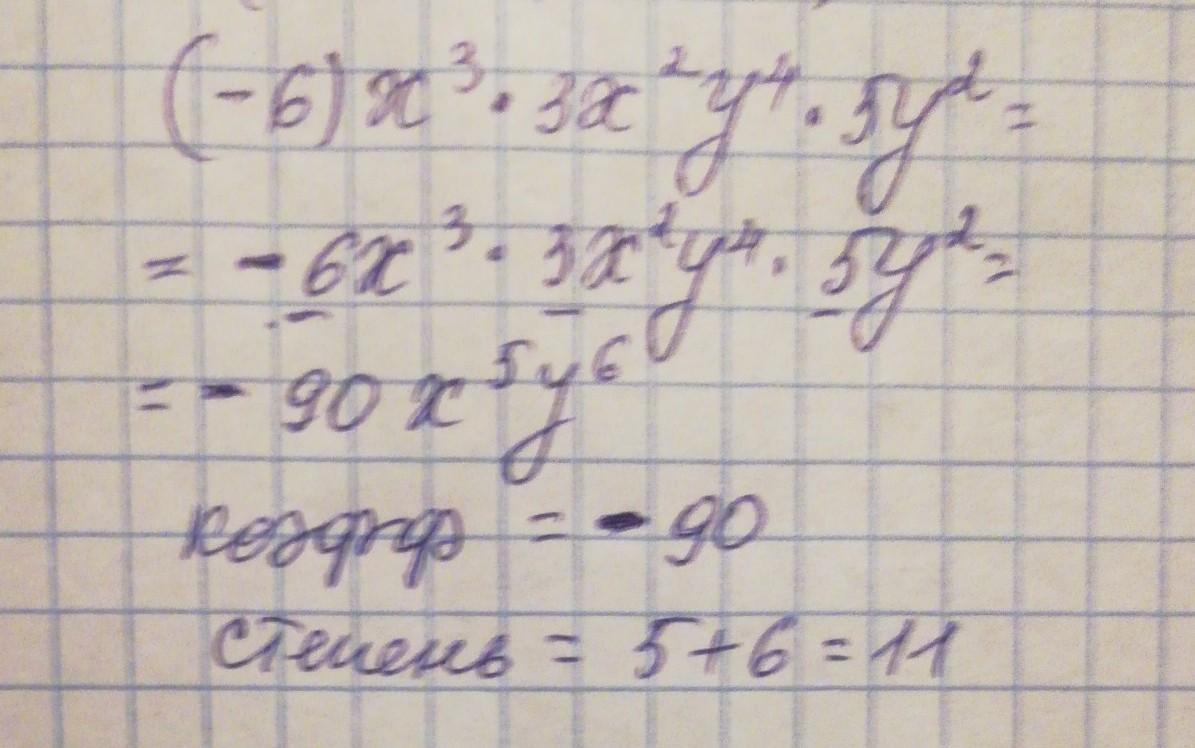 (-6)x³ · 3x²y⁴ · 5y² =
= - 6x³ · 3x²y⁴ · 5y² =
= - 90x⁵y⁶
коэфф = - 90
степень = 5+6 = 11